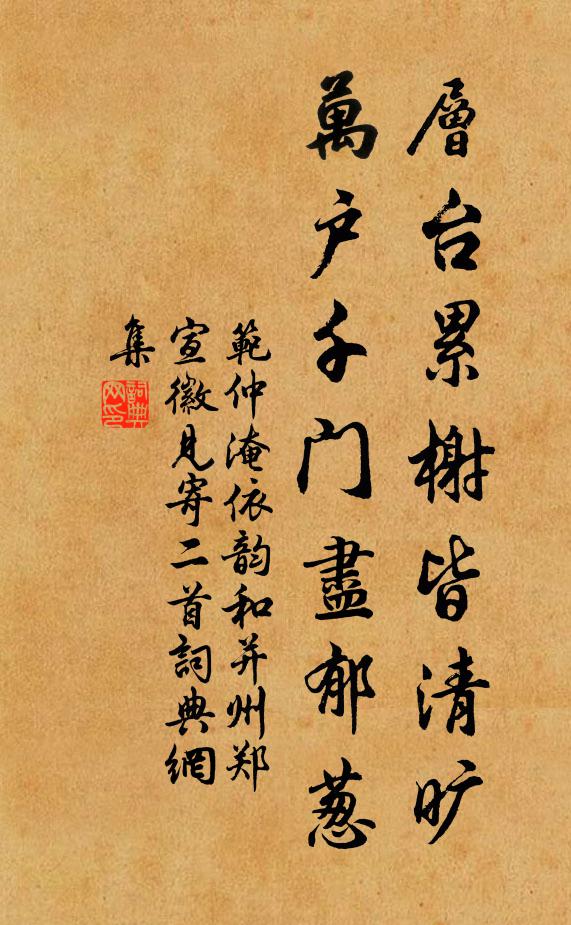 層台累榭皆清旷
萬户千门盡郁葱
範仲淹依韵和并州郑
宣徽見寄二首詞典網
集
詞典
网印